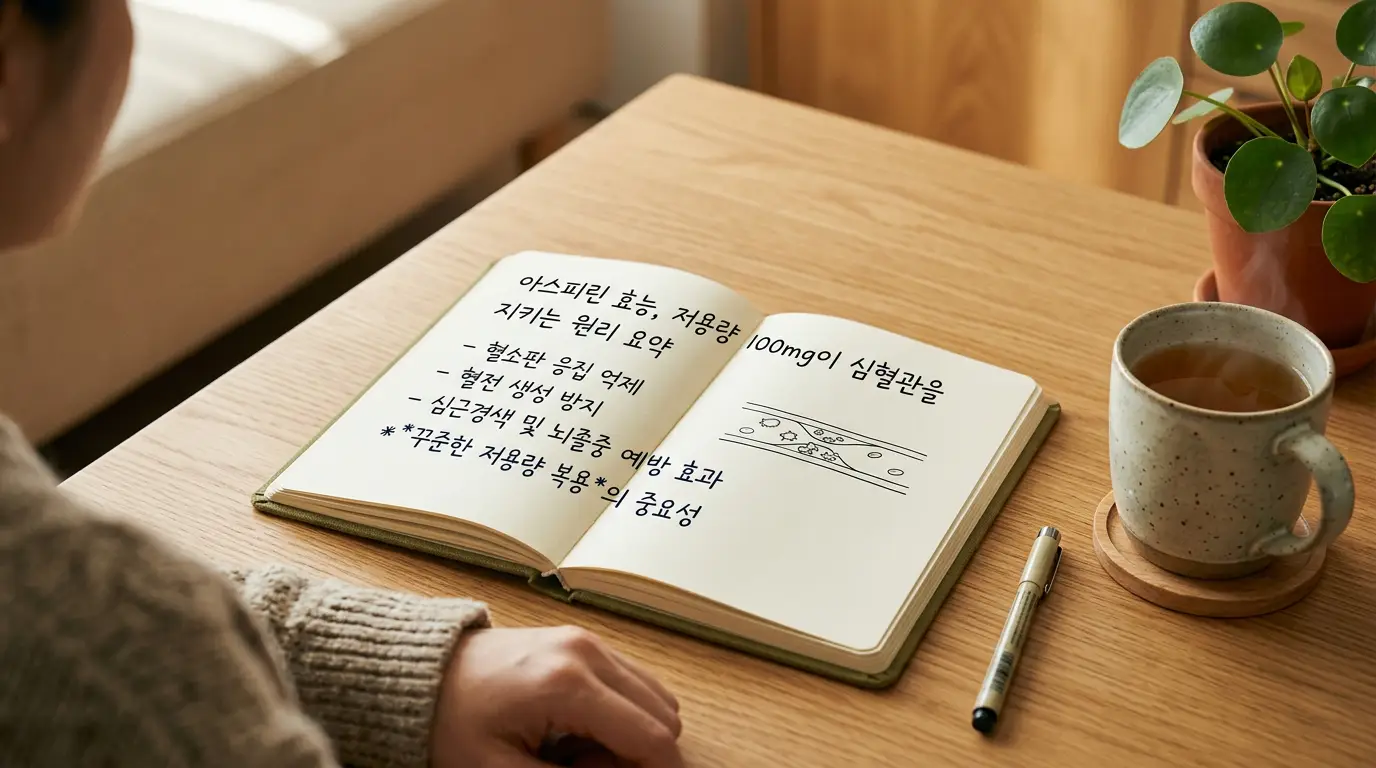 아스피린 효능, 저용량 100mg이 심혈관을
지키는 원리 요약
- 혈소판 응집 억제
- 혈전 생성 방지
- 심근경색 및 뇌졸중 예방 효과
* *꾸준한 저용량 복용*의 중요성